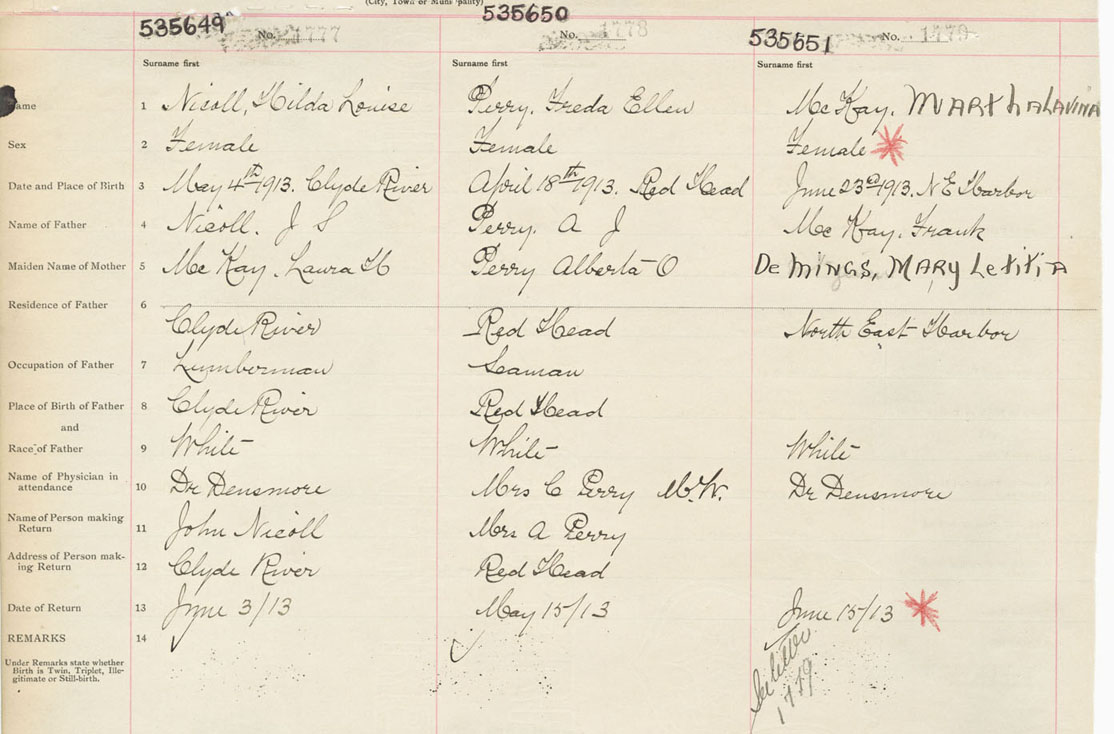 (City, Town or Municipality)
535649 No. 1777 535650 No. 1778 535651 No. 1779
Surname first Surname first Surname first
Name 1 Nicoll, Hilda Louise Perry. Freda Ellen Mc Kay. MARthALAVINA
Sex 2 Female Female Female
Date and Place of Birth 3 May 4th 1913. Clyde River April 18th 1913. Red Head June 23rd 1913. N E Harbor
Name of Father 4 Nicoll. J S Perry. A J Mc Kay. Frank
Maiden Name of Mother 5 Mc Kay. Laura H Perry Alberta O De MINGS, MARY LetitiA
Residence of Father 6
Clyde River Red Head North East Harbor
Occupation of Father 7 Lumberman Seaman
Place of Birth of Father 8 Clyde River Red Head
and
Race of Father 9 White White White
Name of Physician in
attendance 10 Dr Densmore Mrs C Perry M.W. Dr Densmore
Name of Person making
Return 11 John Nicoll Mrs A Perry
Address of Person mak-
ing Return 12 Clyde River Red Head
Date of Return 13 June 3/13 May 15/13 June 15/13
REMARKS 14
Under Remarks state whether
Birth is Twin, Triplet, Ille-
gitimate or Still-birth.
1779